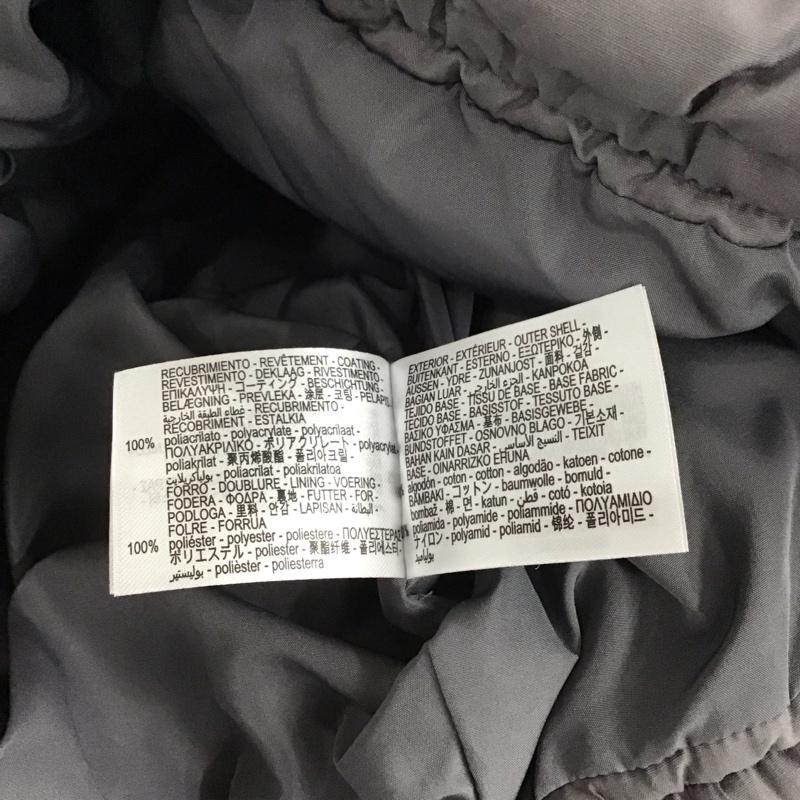 RECUBRIMIENTO - REVÊTEMENT - COATING -
REVESTIMENTO - DEKLAAG - RIVESTIMENTO -
ΕΠΙΚΑΛΥΨΗ - コーティング - BESCHICHTUNG -
BELÆGNING - PREVLEKA - 涂层 - 코팅 - PELAPIS -
غطاء الطبقة الخارجية - RECUBRIMENTO -
RECOBRIMENT - ESTALKIA
100% poliacrilato - polyacrylate - polyacrilaat -
ΠΟΛΥΑΚΡΙΛΙΚΟ - ポリアクリレート - polyacrylat -
poliakrilat - 聚丙烯酸酯 - 폴리아크릴 -
بولياكريلات - poliacrilat - poliakrilatoa
FORRO - DOUBLURE - LINING - VOERING -
FODERA - ΦΟΔΡΑ - 裏地 - FUTTER - FOR -
PODLOGA - 里料 - 안감 - LAPISAN - البطانة -
FOLRE - FORRUA
100% poliéster - polyester - poliestere - ΠΟΛΥΕΣΤΕΡΑΣ
ポリエステル - poliester - 聚酯纤维 - 폴리에스터 -
بوليستير - polièster - poliesterra
EXTERIOR - EXTÉRIEUR - OUTER SHELL -
BUITENKANT - ESTERNO - ΕΞΩΤΕΡΙΚΟ - 外側 -
AUSSEN - YDRE - ZUNANJOST - 面料 - 겉감 -
BAGIAN LUAR - الجزء الخارجي - KANPOKOA
TEJIDO BASE - TISSU DE BASE - BASE FABRIC -
TECIDO BASE - BASISSTOF - TESSUTO BASE -
ΒΑΣΙΚΟ ΥΦΑΣΜΑ - 基布 - BASISGEWEBE -
BUNDSTOFFET - OSNOVNO BLAGO - 기본소재 -
BAHAN KAIN DASAR - النسيج الأساسي - TEIXIT
BASE - OINARRIZKO EHUNA
algodón - coton - cotton - algodão - katoen - cotone -
ΒΑΜΒΑΚΙ - コットン - baumwolle - bomuld -
bombaž - 棉 - 면 - katun - قطن - cotó - kotoia
poliamida - polyamide - poliammide - ΠΟΛΥΑΜΙΔΙΟ
ナイロン - polyamid - poliamid - 锦纶 - 폴리아미드 -
بوليأميد